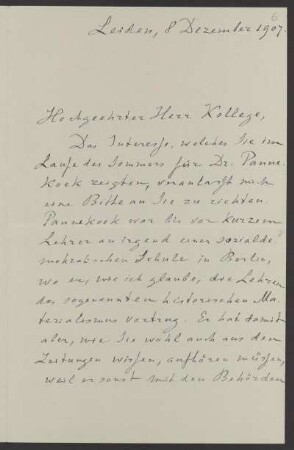 6
Leiden, 8 Dezember 1907.
Hochgeehrter Herr Kollege,
Das Interesse, welches Sie im
Laufe des Sommers für Dr. Panne-
koek zeigten, veranlasst mich
eine Bitte an Sie zu richten.
Pannekoek war bis vor kurzem
Lehrer an irgend einer sozialde-
mokratischen Schule in Berlin,
wo er, wie ich glaube, die Lehren
des sogenannten historischen Ma-
terialismus vortrug. Er hat damit
aber, wie Sie wohl auch aus den
Zeitungen wissen, aufhören müssen,
weil er sonst mit den Behörden